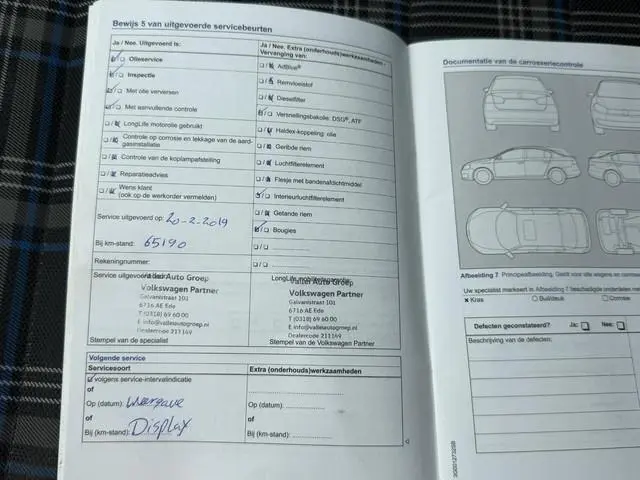 Bewijs 5 van uitgevoerde servicebeurten
Ja / Nee. Uitgevoerd is:
Olieservice
Inspectie
Met olie verversen
Met aanvullende controle
LongLife motorolie gebruikt
Controle op corrosie en lekkage van de aard-
gasinstallatie
Controle van de koplampafstelling
Reparatieadvies
Wens klant
(ook op de werkorder vermelden)
Service uitgevoerd op: 20-2-2019
Bij km-stand: 65190
Rekeningnummer:
Ja / Nee. Extra (onderhouds)werkzaamheden -
Vervanging van:
AdBlue®
Remvloeistof
Dieselfilter
Versnellingsbakolie: DSG®, ATF
Haldex-koppeling: olie
Geribde riem
Luchtfilterelement
Flesje met bandenafdichtmiddel
Interieurluchtfilterelement
Getande riem
Bougies
Service uitgevoerd door:
Vallei Auto Groep
Volkswagen Partner
Galvanistraat 101
6716 AE Ede
T (0318) 69 60 00
E info@valleiautogroep.nl
Dealercode 211149
Stempel van de specialist
LongLife mobiliteitsgarantie:
Vallei Auto Groep
Volkswagen Partner
Galvanistraat 101
6716 AE Ede
T (0318) 69 60 00
E info@valleiautogroep.nl
Dealercode 211149
Stempel van de Volkswagen Partner
Volgende service
Servicesoort
volgens service-intervalindicatie
of
Op (datum): Weergave
of
Bij (km-stand): Display
Extra (onderhouds)werkzaamheden
Op (datum):
of
Bij (km-stand):
Documentatie van de carrosseriecontrole
Afbeelding 7 Principeafbeelding. Geldt voor alle wagens en carrosse
Uw specialist markeert in Afbeelding 7 beschadigde onderdelen me
x Kras
Buil/deuk
Corrosie
Defecten geconstateerd?
Ja:
Nee:
Beschrijving van de defecten: